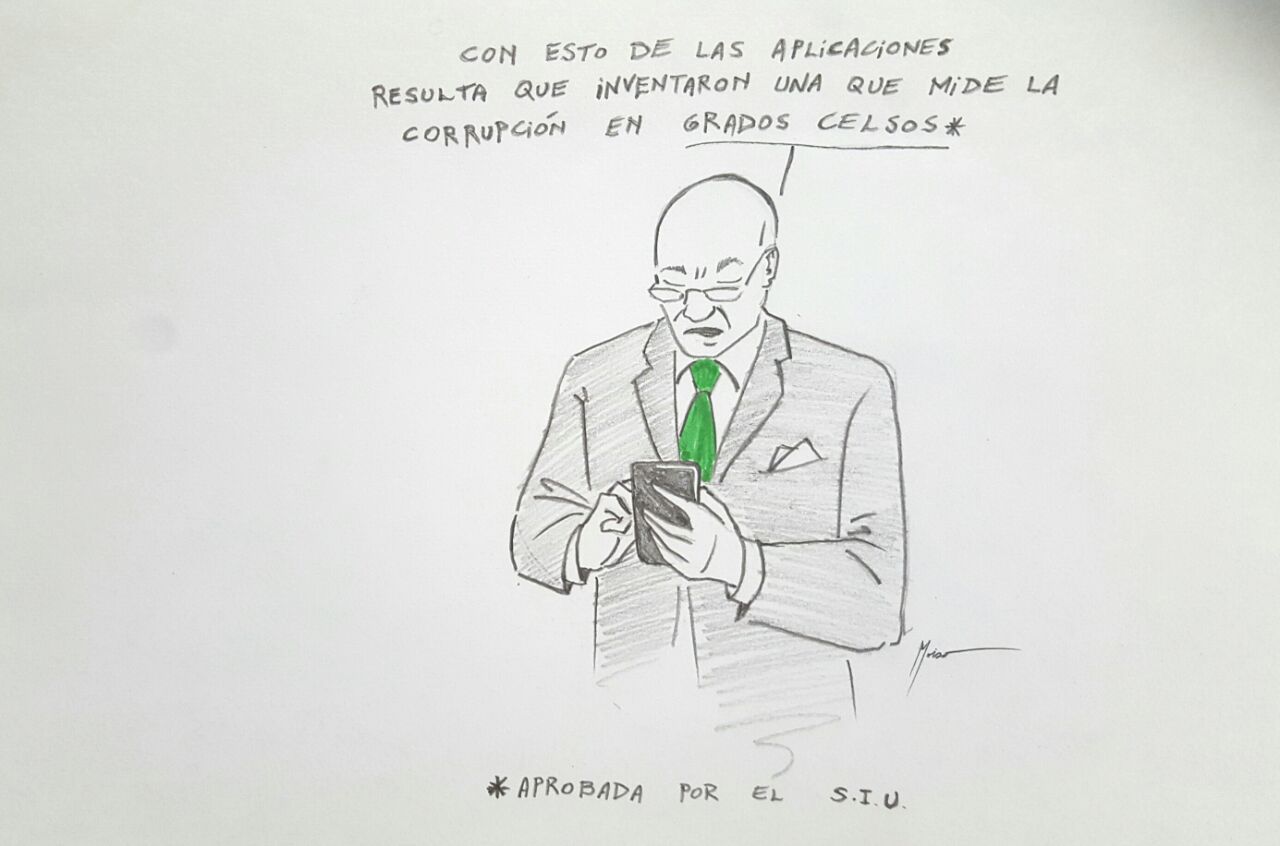 CON ESTO DE LAS APLICACIONES
RESULTA QUE INVENTARON UNA QUE MIDE LA
CORRUPCIÓN EN GRADOS CELSOS*
*APROBADA POR EL S.I.U.